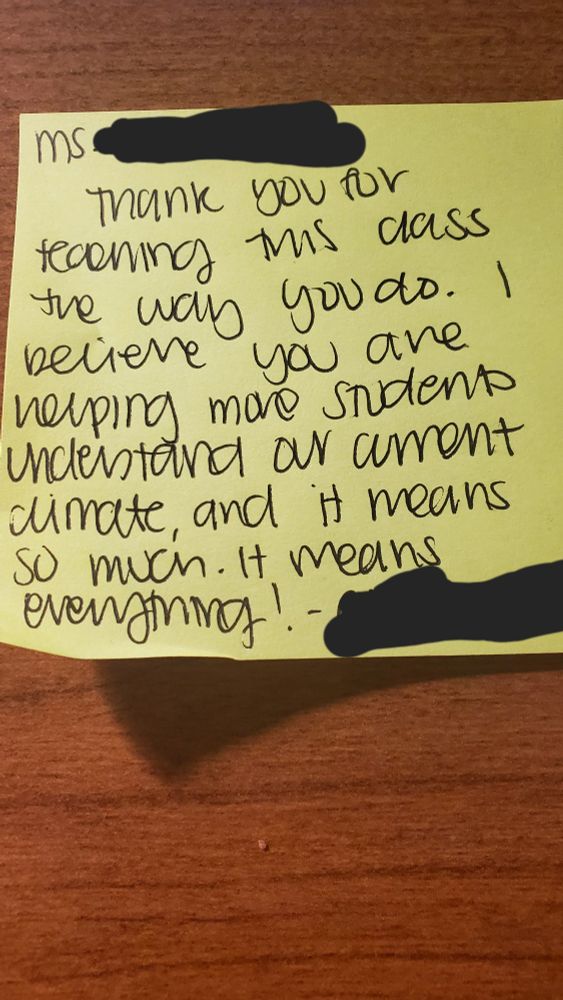 Ms.
Thank you for
teaching this class
the way you do. I
believe you are
helping more students
understand our current
climate, and it means
so much. It means
everything! -